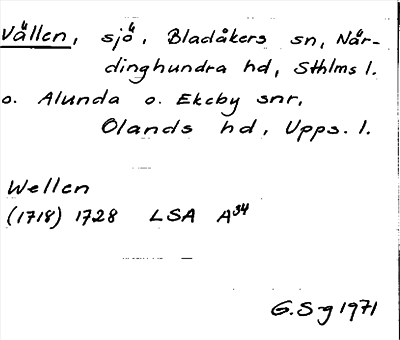 Vällen, sjö, Bladåkers sn, När-
dinghundra hd, Sthlms l.
o. Alunda o. Ekeby snr,
Olands hd, Upps. l.
Wellen
(1718) 1728 LSA A34
G.S-g 1971